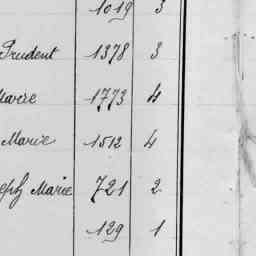 1019 3
Prudent 1378 3
Marie 1773 4
Marie 1512 4
eph Marie 721 2
129 1